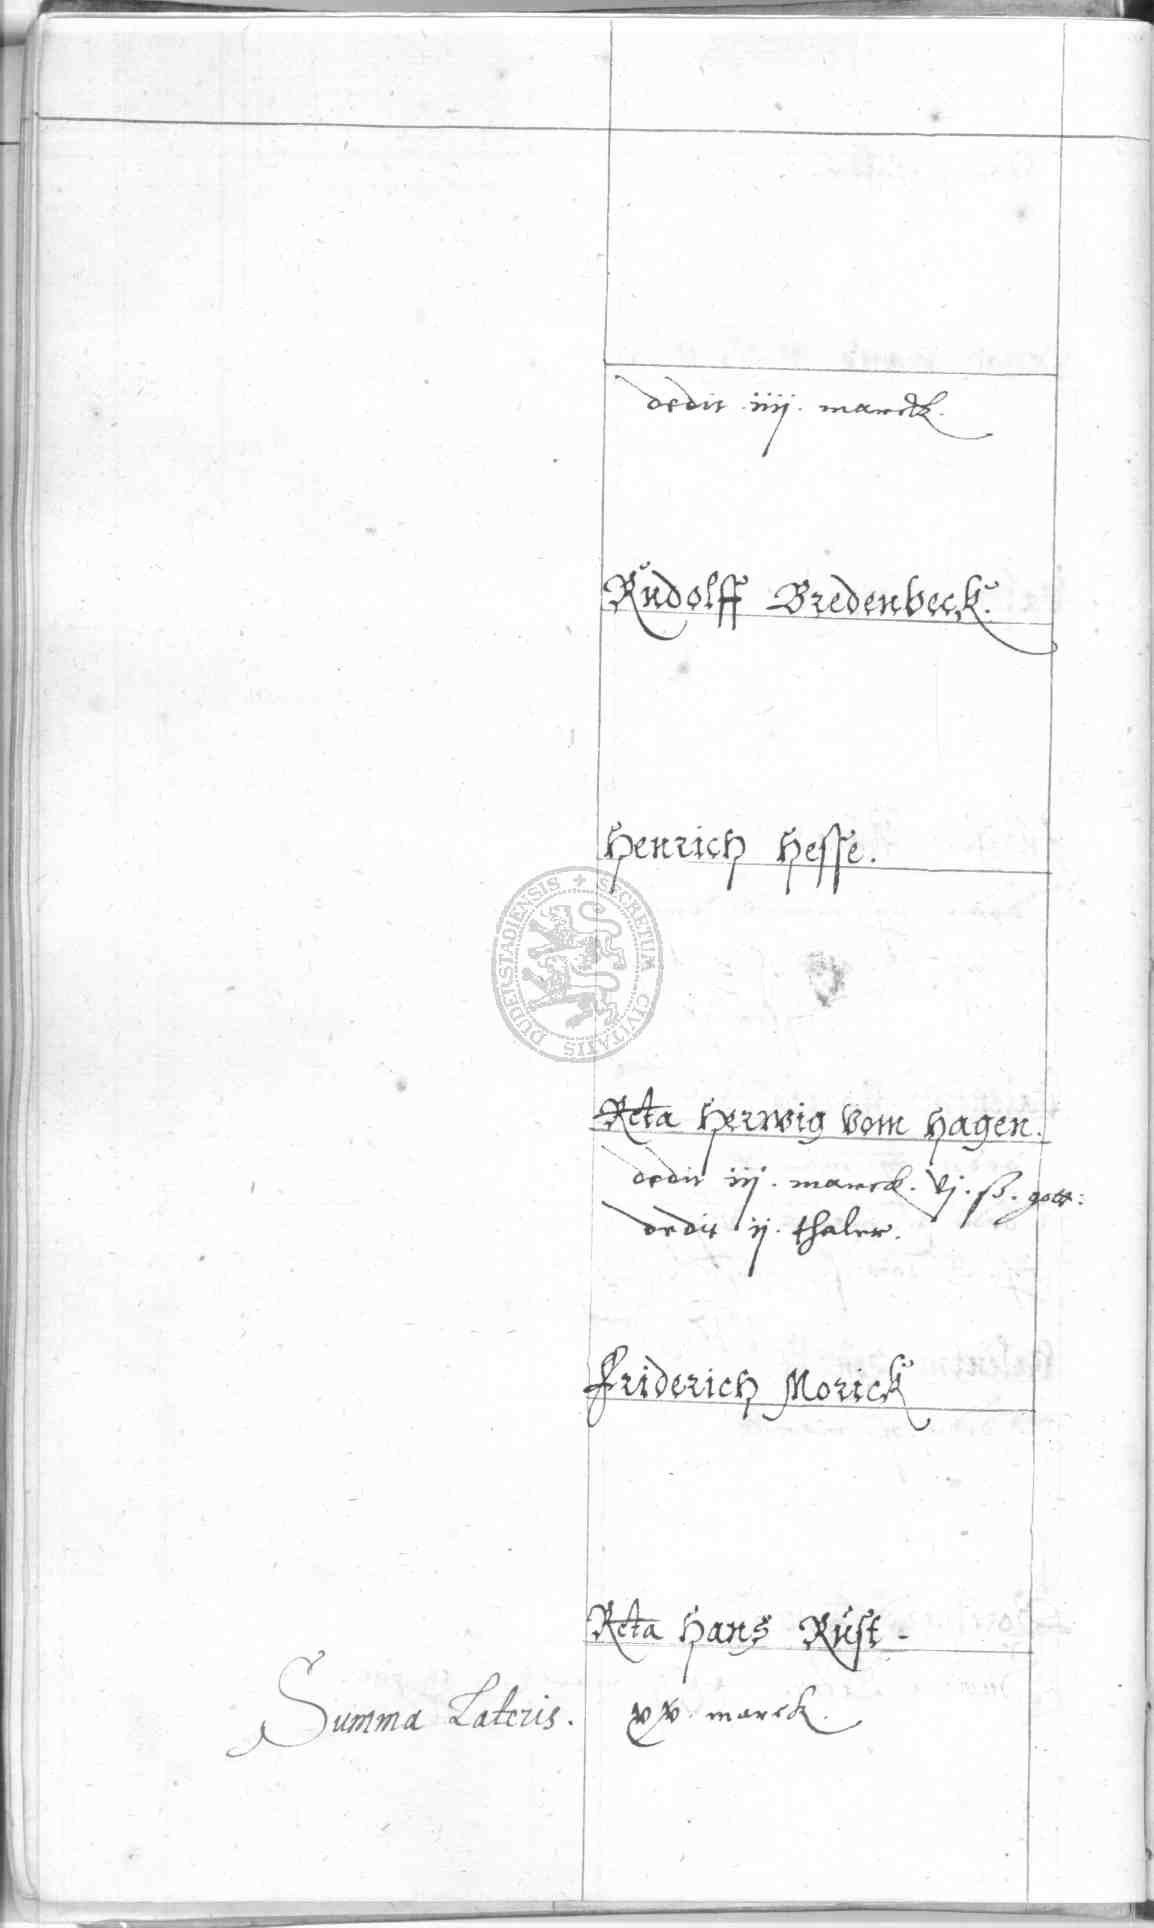 dedit .iiij. marck.
Rudolff Bredenbeck.
Henrich Hesse.
SECRETUM CIVITATIS DUDERSTADIENSIS
Rcta Herwig vom Hagen.
dedit iij. marck. vj. ß. gott:
dedit ij. thaler.
Friderich Morick
Rcta Hans Rust -
Summa Lateris. xx. marck.